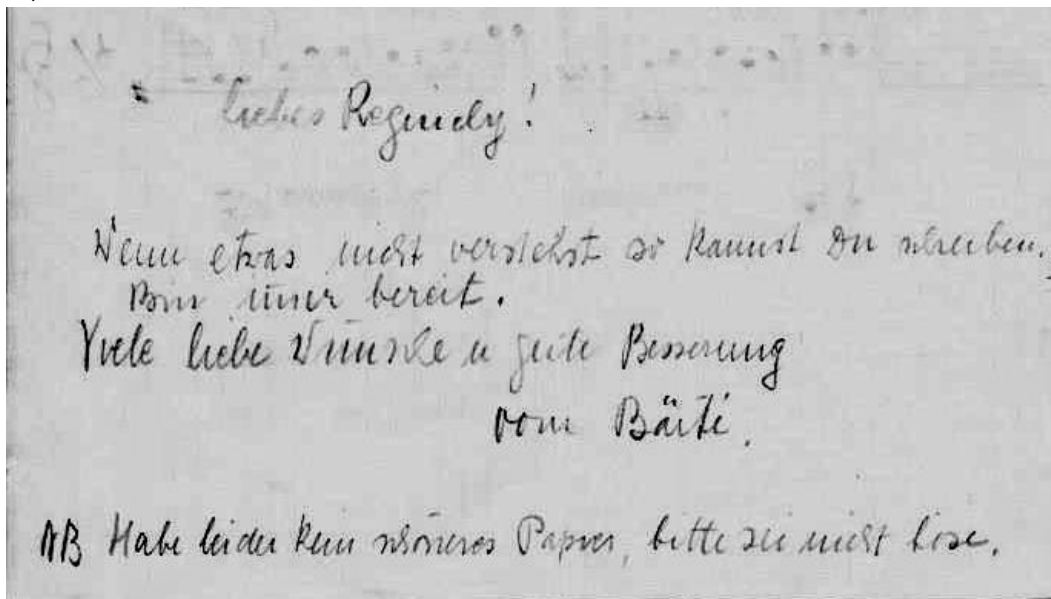 liebes Reginely!
Wenn etwas nicht verstehst so kannst Du schreiben.
Bin imer bereit.
Viele liebe Wünsche u gute Besserung
vom Bärti.
NB Habe leider kein schöneres Papier, bitte sei nicht böse.